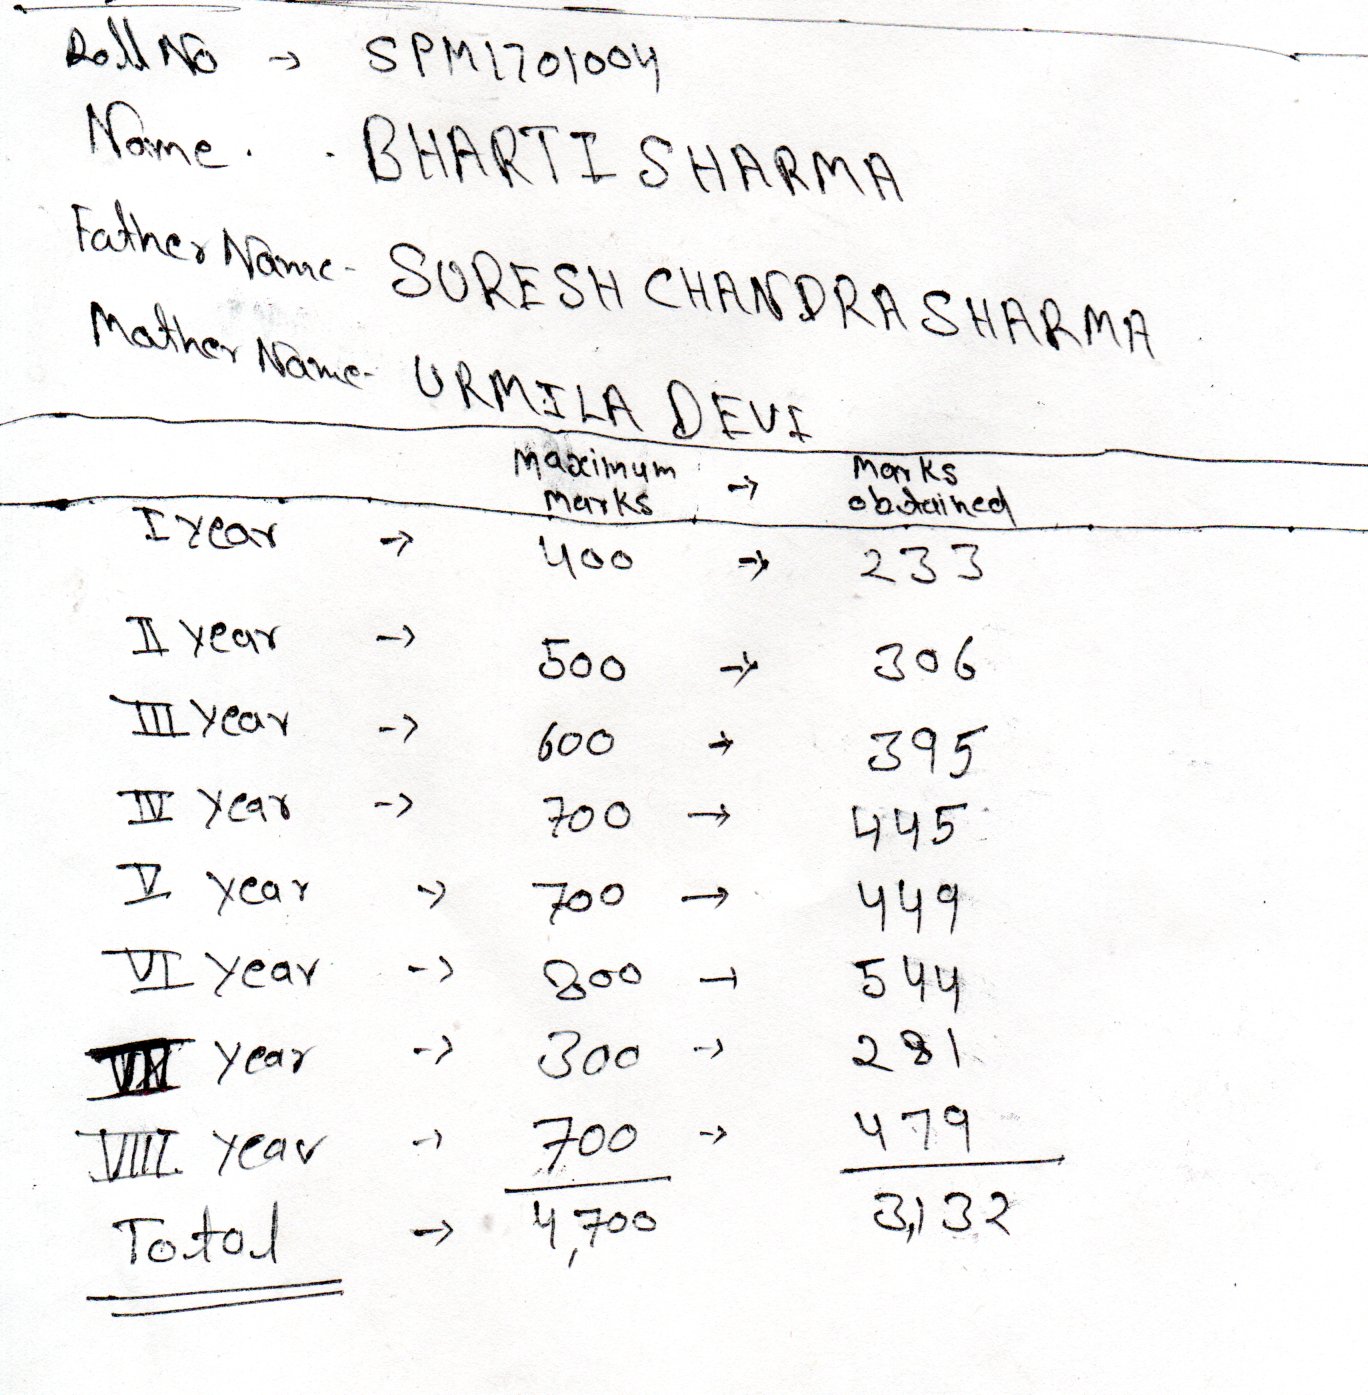 Roll No → SPM1701004
Name. . BHARTI SHARMA
Father Name- SURESH CHANDRA SHARMA
Mather Name- URMILA DEVI
Maximum marks → Marks obtained
I year → 400 → 233
II year → 500 → 306
III year → 600 → 395
IV year → 700 → 445
V year → 700 → 449
VI year → 800 → 544
VII year → 300 → 281
VIII year → 700 → 479
Total → 4,700 3,132